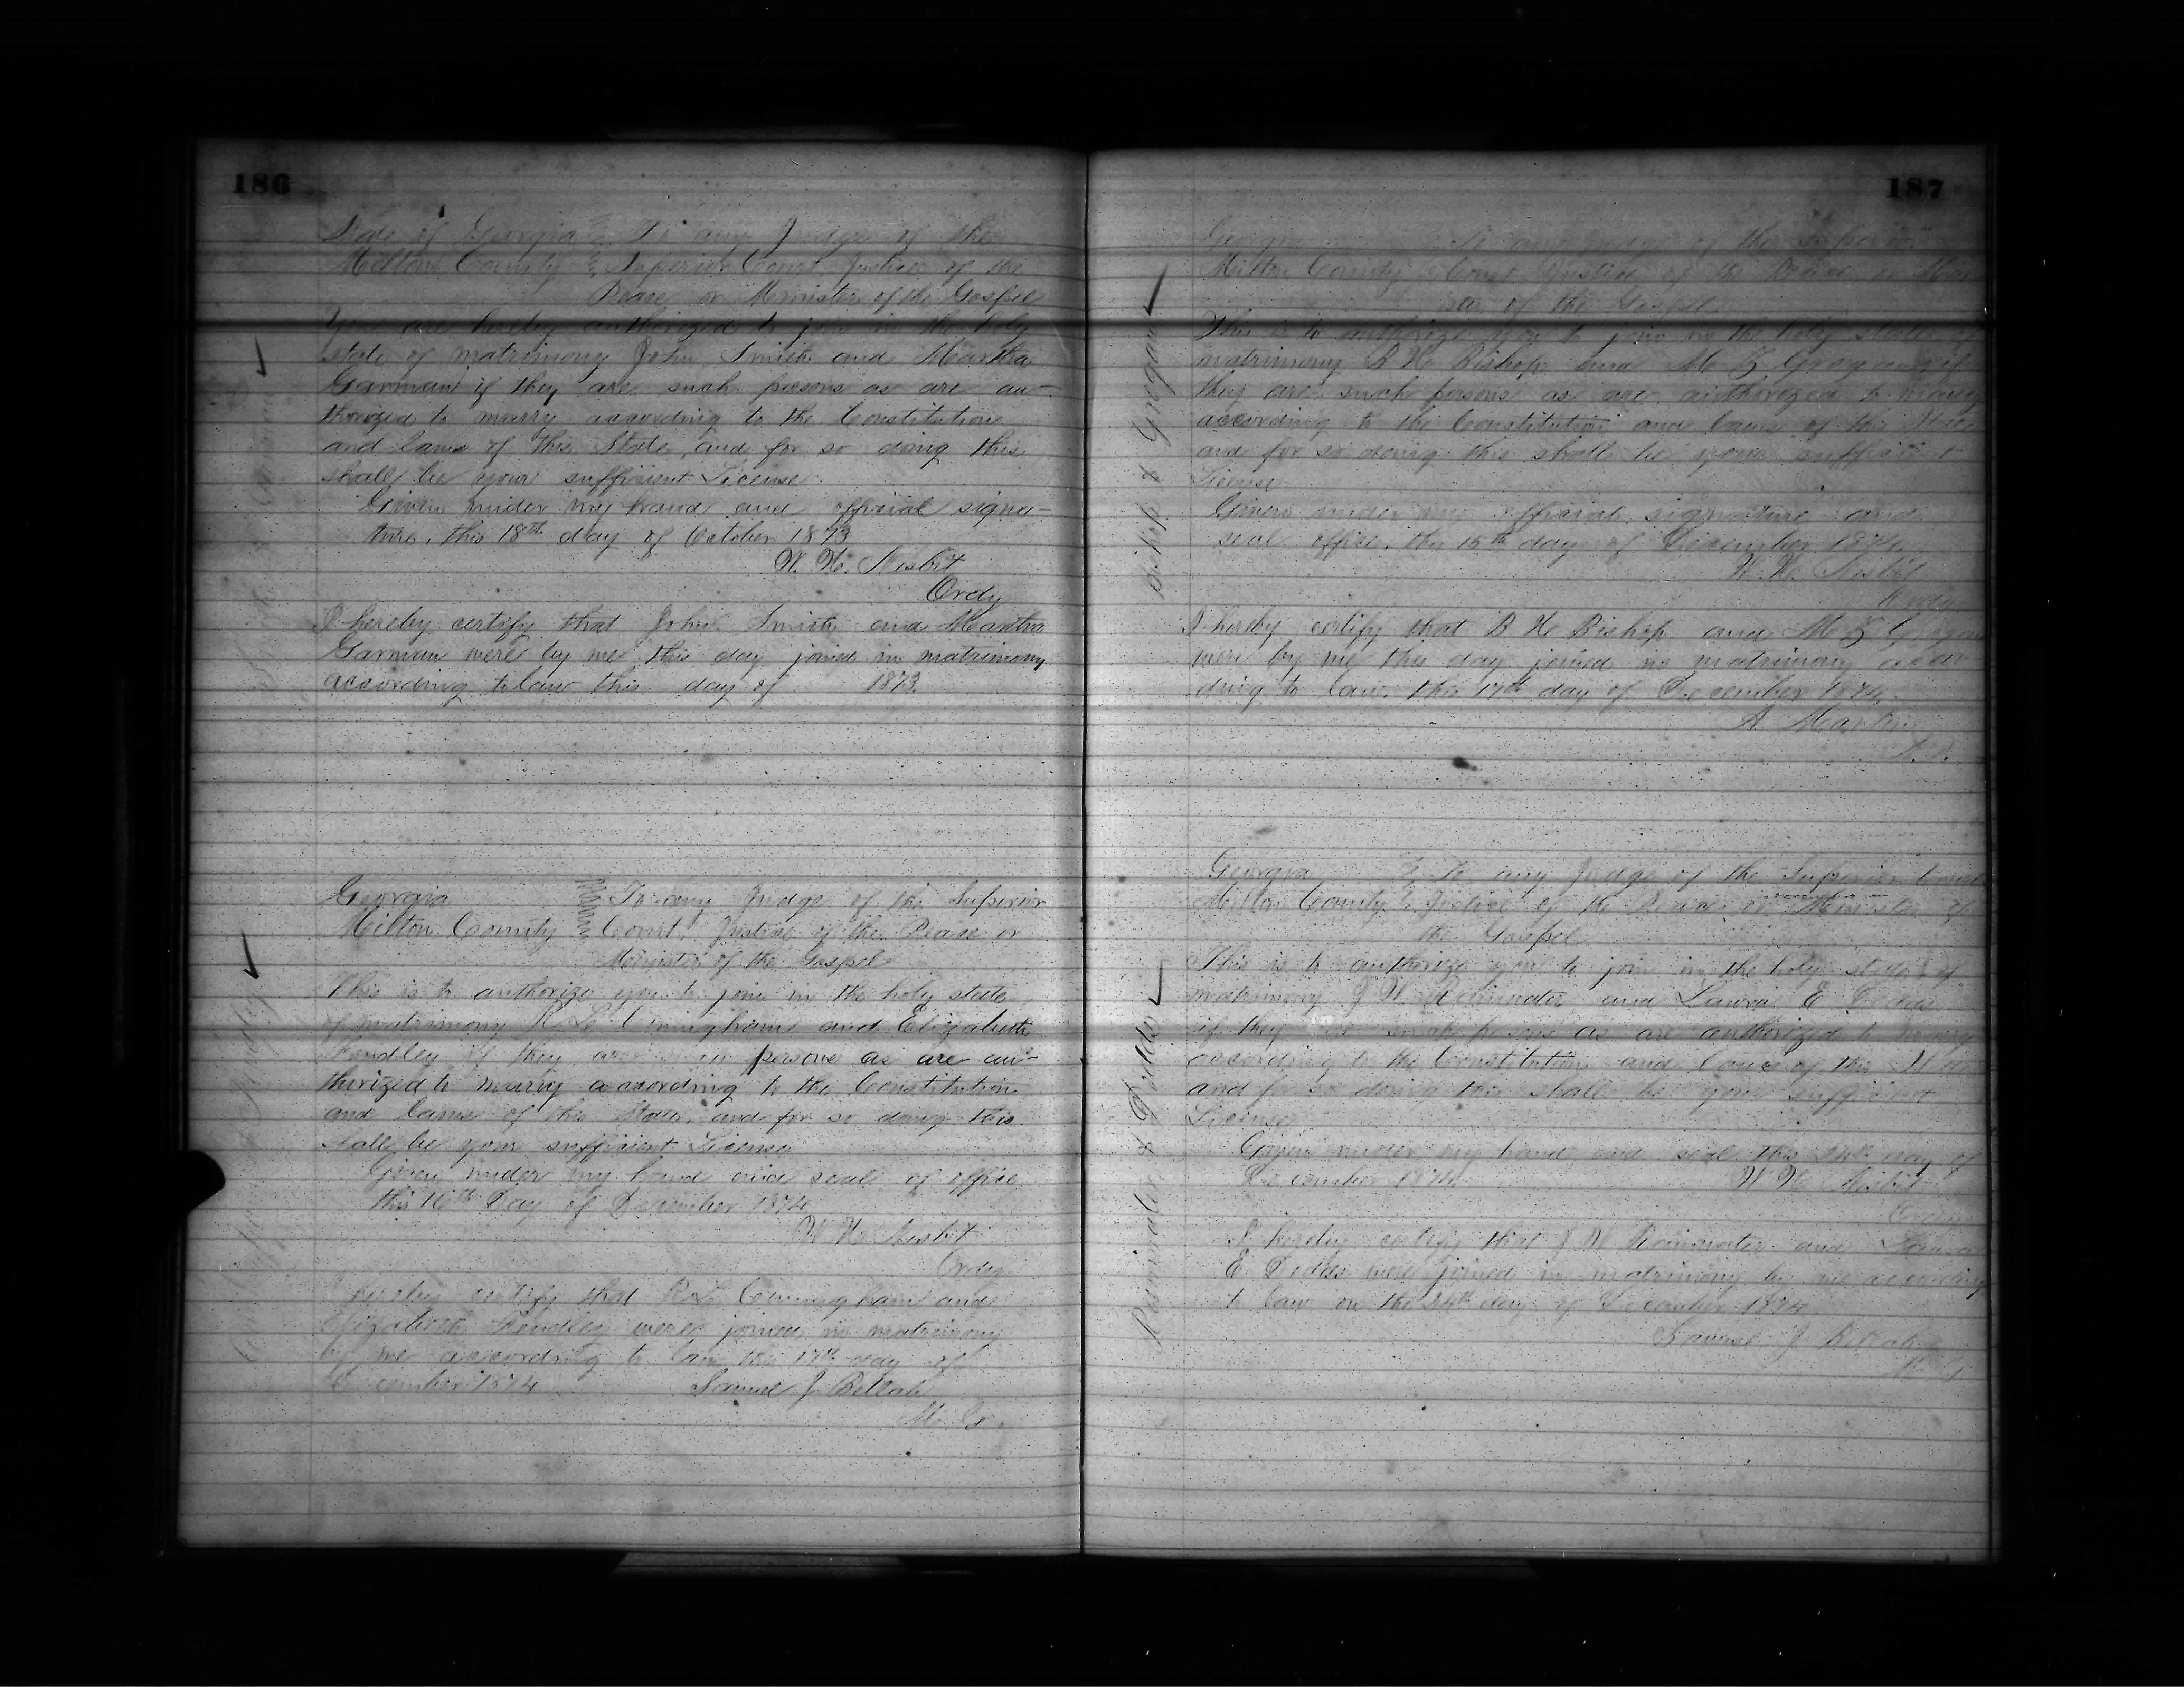 186
State of Georgia To any Judge of the
Milton County Superior Court, Justice of the
Peace or Minister of the Gospel
You are hereby authorized to join in the holy
state of matrimony John Smith and Martha
Garman if they are such persons as are au-
thorized to marry according to the Constitution
and laws of this State, and for so doing this
shall be your sufficient License
Given under my hand and official signa-
ture, this 18th day of October 1873
W. H. Nesbit
Ordy
I hereby certify that John Smith and Martha
Garman were by me this day joined in matrimony
according to law this day of 1873.
Georgia To any Judge of the Superior
Milton County Court, Justice of the Peace or
Minister of the Gospel
This is to authorize you to join in the holy state
of matrimony R. L. Cunningham and Elizabeth
Fendley if they are such persons as are au-
thorized to marry according to the Constitution
and laws of this State, and for so doing this
shall be your sufficient License
Given under my hand and seal of office
this 16th Day of December 1874
W. H. Nesbit
Ordy
I hereby certify that R. L. Cunningham and
Elizabeth Fendley were joined in matrimony
by me according to law the 17th day of
December 1874 Samuel J. Bellah
M. G.
187
Georgia To any Judge of the Superior
Milton County Court, Justice of the Peace or Min
ister of the Gospel
This is to authorize you to join in the holy state of
matrimony B H Bishop and M Z Grogan if
they are such persons as are authorized to marry
according to the Constitution and laws of this State
and for so doing this shall be your sufficient
License
Given under my official signature and
seal office, this 15th day of December 1874
W. H. Nesbit
Ordy
I hereby certify that B H Bishop and M Z Grogan
were by me this day joined in matrimony accor
ding to law, this 17th day of December 1874.
A Martin
Bishop & Grogan
Georgia To any Judge of the Superior Court
Milton County Justice of the Peace or Minister of
the Gospel
This is to authorize you to join in the holy state of
matrimony J W Rainwater and Laura E
if they are such persons as are authorized to marry
according to the Constitution and laws of this State
and for so doing this shall be your sufficient
License
Given under my hand and seal this 24th day of
December 1874 W H Nesbit
Ordy
I hereby certify that J W Rainwater and Laura
E were joined in matrimony by me according
to law on the 24th day of December 1874
Samuel J Bellah
M G
Rainwater &